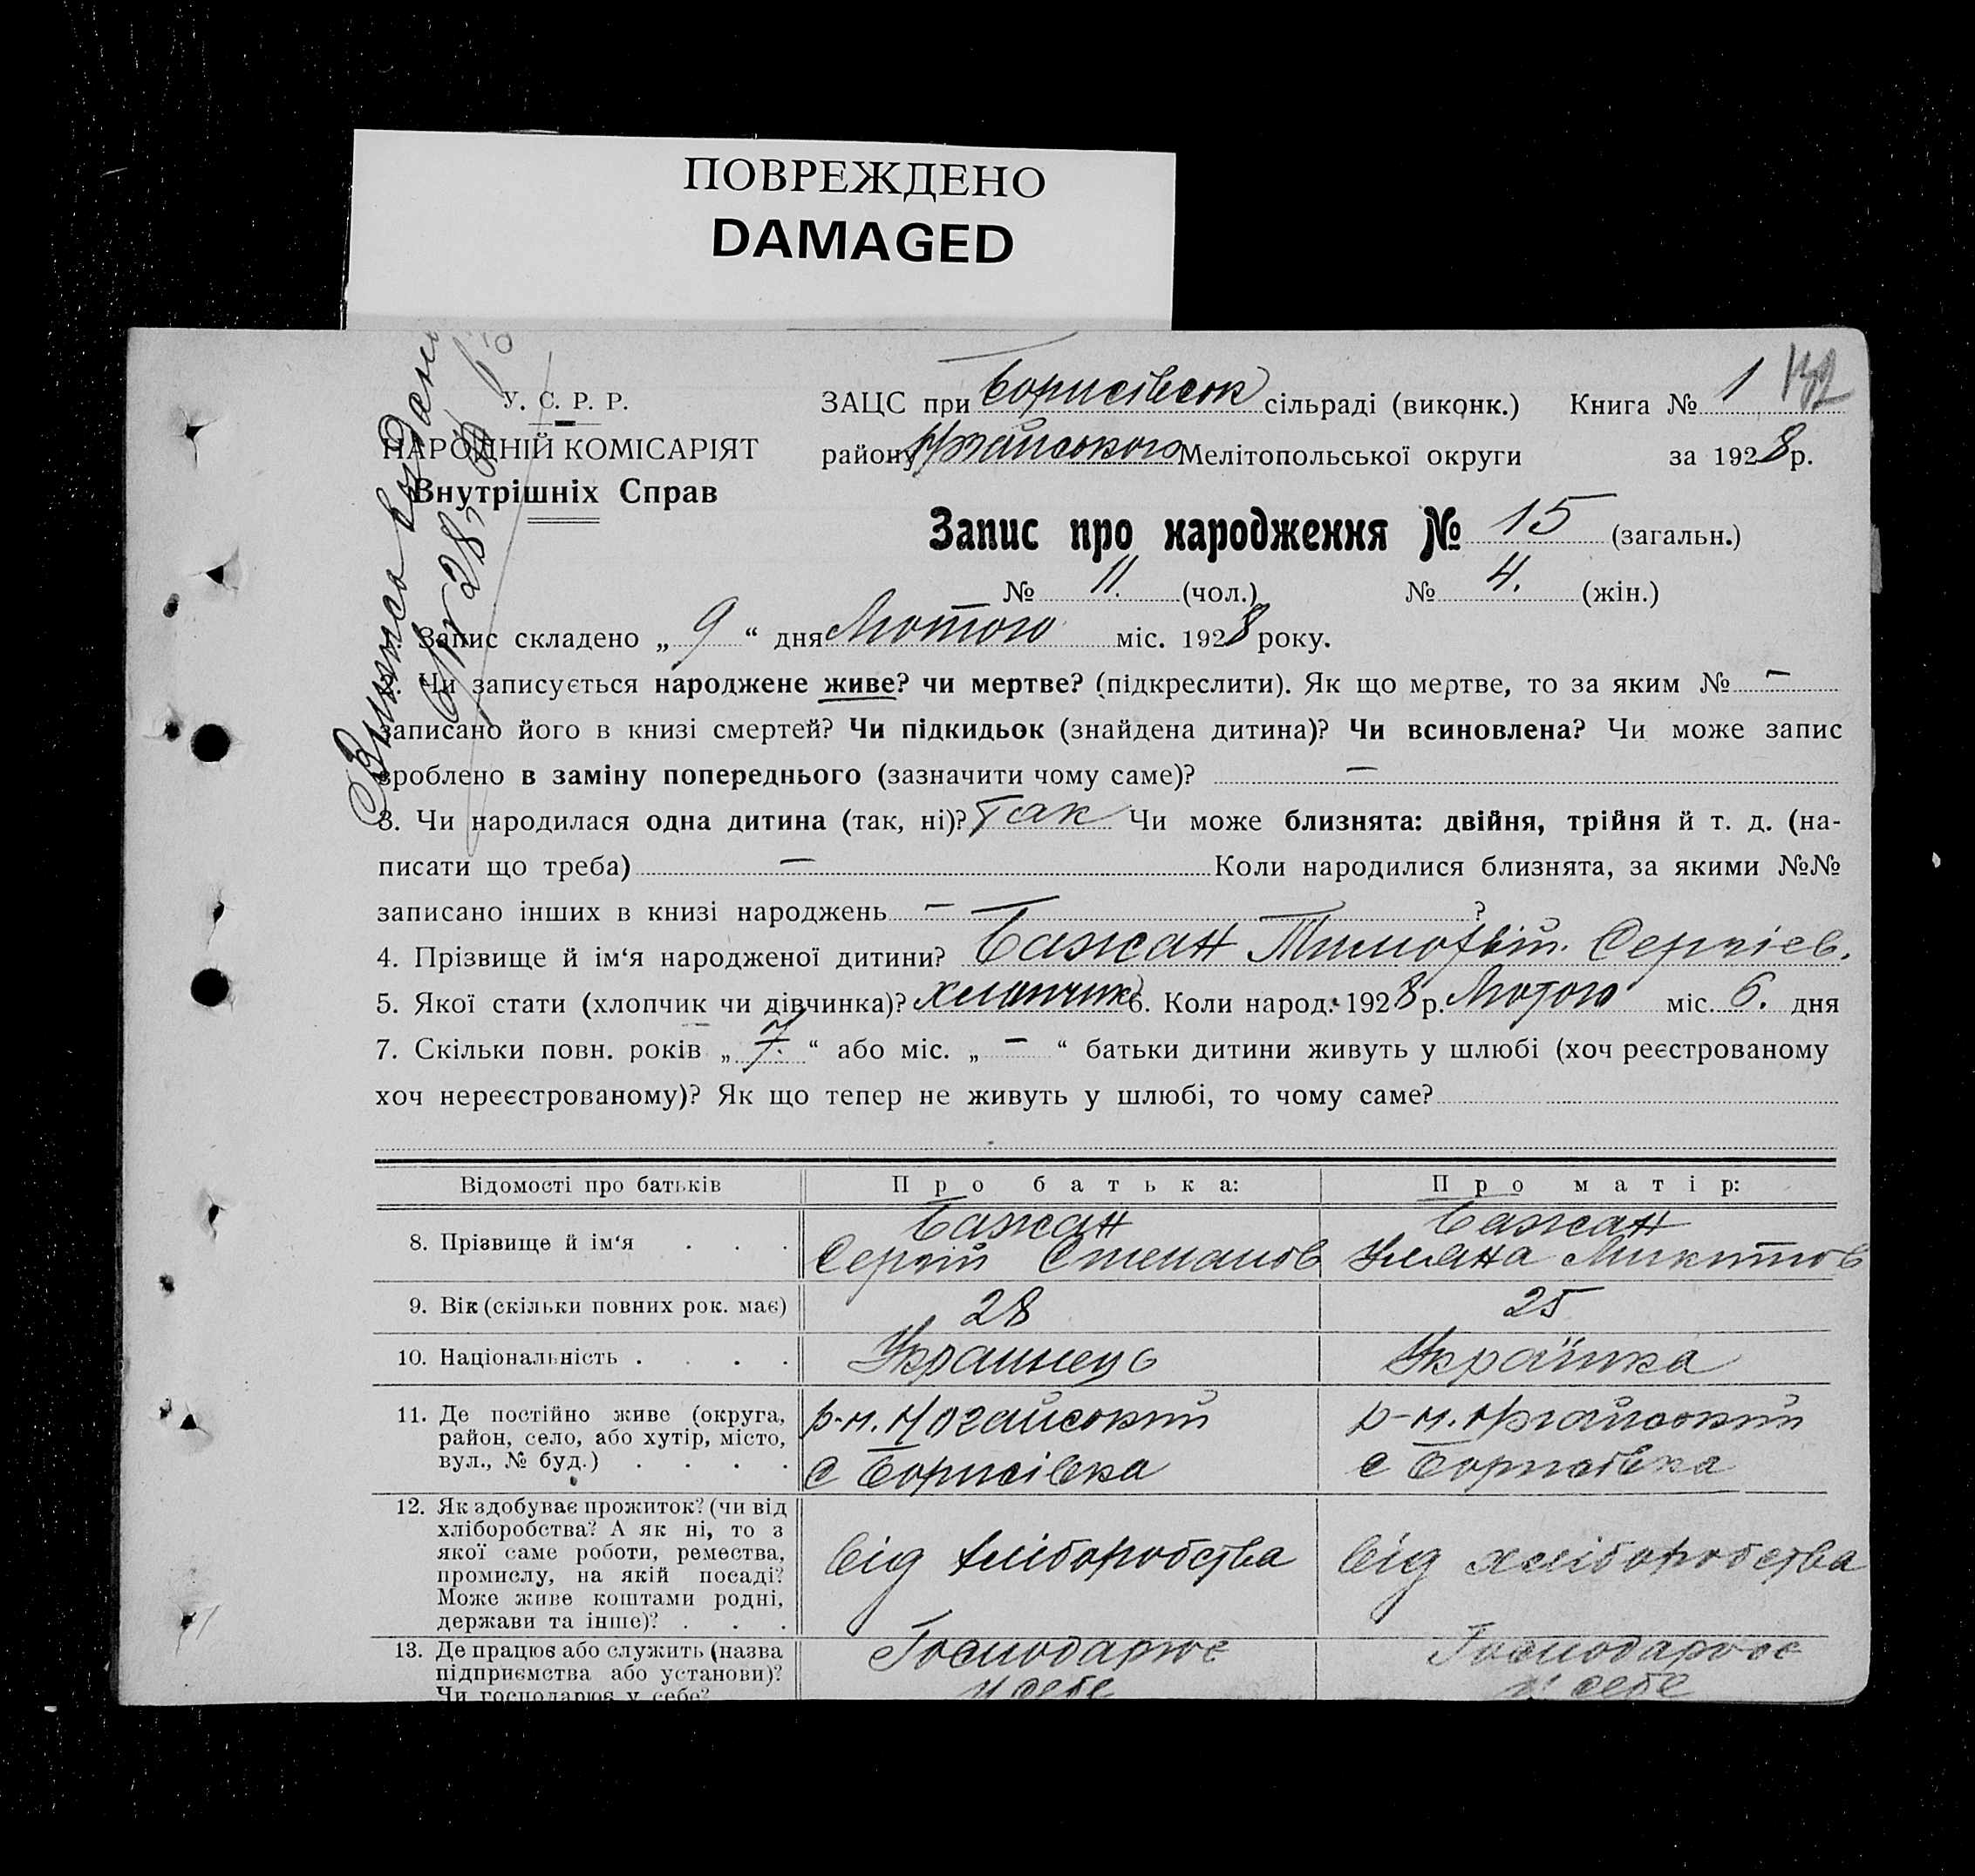 ПОВРЕЖДЕНО
DAMAGED
У. С. Р. Р.
НАРОДНІЙ КОМІСАРІЯТ
Внутрішніх Справ
Виписа видана
28
ЗАЦС при Борисівськ сільраді (виконк.) Книга № 1 132
району Ногайського Мелітопольської округи за 1928 р.
Запис про народження № 15 (загальн.)
№ 11. (чол.) № 4. (жін.)
Запис складено „ 9 “ дня Лютого міс. 1928 року.
Чи записується народжене живе? чи мертве? (підкреслити). Як що мертве, то за яким № —
записано його в книзі смертей? Чи підкидьок (знайдена дитина)? Чи всиновлена? Чи може запис
зроблено в заміну попереднього (зазначити чому саме)? —
3. Чи народилася одна дитина (так, ні)? Так Чи може близнята: двійня, трійня й т. д. (на-
писати що треба) — Коли народилися близнята, за якими №№
записано інших в книзі народжень — ?
4. Прізвище й ім‘я народженої дитини? Бажан Тимофій Сергіев.
5. Якої стати (хлопчик чи дівчинка)? хлопчик 6. Коли народ. 1928 р. Лютого міс. 6. дня
7. Скільки повн. років „ 7. “ або міс. „ — “ батьки дитини живуть у шлюбі (хоч реєстрованому
хоч нереєстрованому)? Як що тепер не живуть у шлюбі, то чому саме?
Відомості про батьків Про батька: Про матір:
8. Прізвище й ім‘я . . . Бажан Сергій Степанов Бажан Уляна Микитов
9. Вік (скільки повних рок. має) 28 25
10. Національність . . . . Украинець Українка
11. Де постійно живе (округа,
район, село, або хутір, місто,
вул., № буд.) . . . .
р-н. Ногайський
с Борисівка
р-н. Ногайський
с Борисівка
12. Як здобуває прожиток? (чи від
хліборобства? А як ні, то з
якої саме роботи, ремества,
промислу, на якій посаді?
Може живе коштами родні,
держави та інше)? . . .
від хліборобства
від хліборобства
13. Де працює або служить (назва
підприємства або установи)?
Чи господарює у себе?
Господарює
у себе
Господарює
у себе